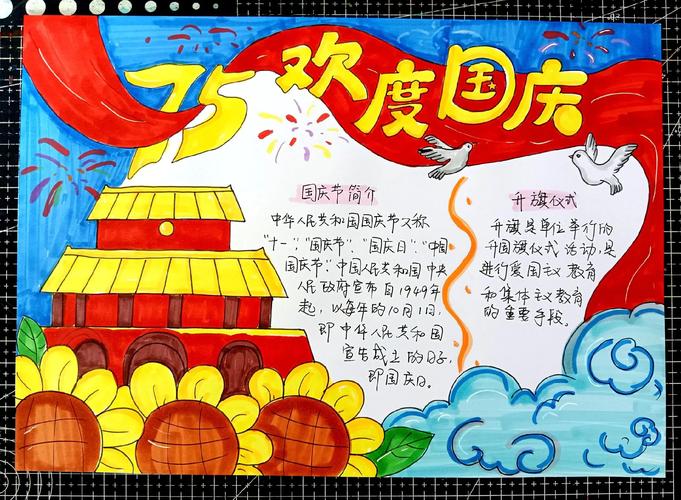 75
欢度国庆
国庆节简介
中华人民共和国国庆节又称
"十一"、"国庆节"、"国庆日"、"中国
国庆节"。中国人民共和国中央
人民政府宣布自1949年
起,以每年的10月1日,
即中华人民共和国
宣告成立的日子,
即国庆日。
升旗仪式
升旗是单位举行的
升国旗仪式活动,是
进行爱国主义教育
和集体主义教育
的重要手段。